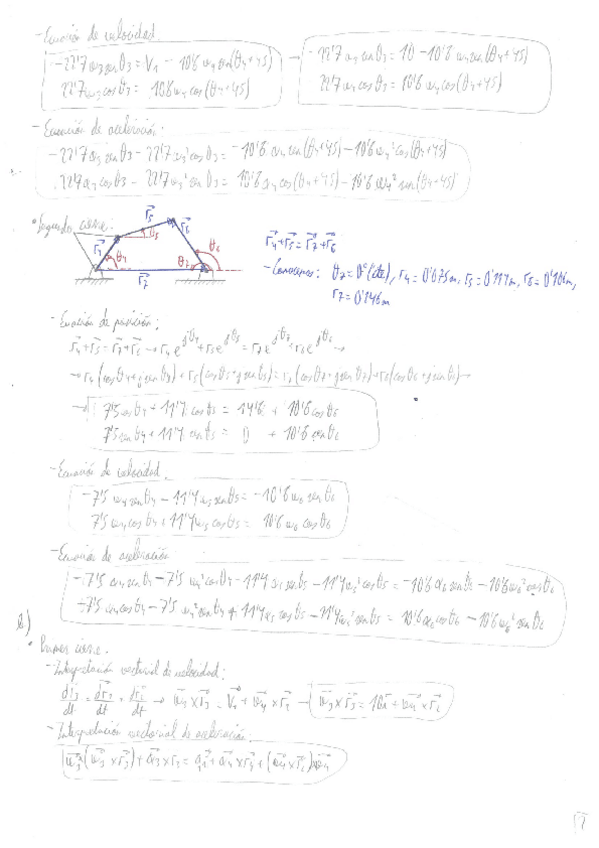 - Ecuación de velocidad
-22'7 ω₃ sen θ₃ = V₁ - 10'6 ω₄ sen(θ₄+45) → -22'7 ω₃ sen θ₃ = 10 - 10'6 ω₄ sen(θ₄+45)
22'7 ω₃ cos θ₃ = 10'6 ω₄ cos(θ₄+45) 22'7 ω₃ cos θ₃ = 10'6 ω₄ cos(θ₄+45)
- Ecuación de aceleración:
-22'7 α₃ sen θ₃ - 22'7 ω₃² cos θ₃ = -10'6 α₄ sen(θ₄+45) - 10'6 ω₄² cos(θ₄+45)
22'7 α₃ cos θ₃ - 22'7 ω₃² sen θ₃ = 10'6 α₄ cos(θ₄+45) - 10'6 ω₄² sen(θ₄+45)
• Segundo cierre:
r₅ r₆ θ₅ r₄ θ₄ r₇ θ₇ θ₆
r₄+r₅=r₇+r₆
- Conocemos: θ₇=0º(cte), r₄=0'075m, r₅=0'117m, r₆=0'106m,
r₇=0'146m
- Ecuación de posición:
r₄+r₅=r₇+r₆ → r₄ e^jθ₄ + r₅ e^jθ₅ = r₇ e^jθ₇ + r₆ e^jθ₆ →
→ r₄(cos θ₄+j sen θ₄) + r₅(cos θ₅+j sen θ₅) = r₇(cos θ₇+j sen θ₇) + r₆(cos θ₆+j sen θ₆) →
→ 7'5 cos θ₄ + 11'7 cos θ₅ = 14'6 + 10'6 cos θ₆
7'5 sen θ₄ + 11'7 sen θ₅ = 0 + 10'6 sen θ₆
- Ecuación de velocidad
-7'5 ω₄ sen θ₄ - 11'7 ω₅ sen θ₅ = -10'6 ω₆ sen θ₆
7'5 ω₄ cos θ₄ + 11'7 ω₅ cos θ₅ = 10'6 ω₆ cos θ₆
- Ecuación de aceleración
-7'5 α₄ sen θ₄ - 7'5 ω₄² cos θ₄ - 11'7 α₅ sen θ₅ - 11'7 ω₅² cos θ₅ = -10'6 α₆ sen θ₆ - 10'6 ω₆² cos θ₆
-7'5 α₄ cos θ₄ - 7'5 ω₄² sen θ₄ + 11'7 α₅ cos θ₅ - 11'7 ω₅² sen θ₅ = 10'6 α₆ cos θ₆ - 10'6 ω₆² sen θ₆
• Primer cierre.
- Interpretación vectorial de velocidad:
- Interpretación vectorial de aceleración.